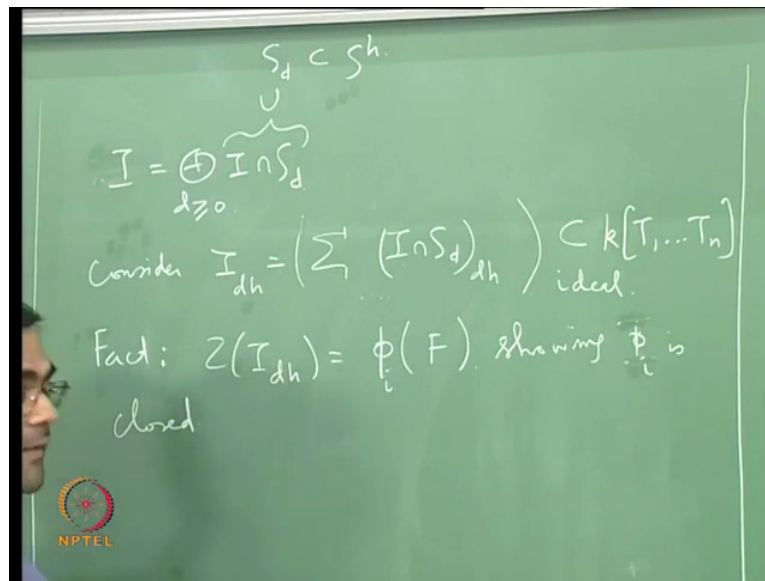 S_d ⊂ S^h.
∪
I = ⊕ I ∩ S_d
d ≥ 0.
Consider I_dh = (∑ (I ∩ S_d)_dh) ⊂ k[T_1, ... T_n]
ideal.
Fact: Z(I_dh) = ϕ_i(F). showing ϕ_i is
closed
NPTEL